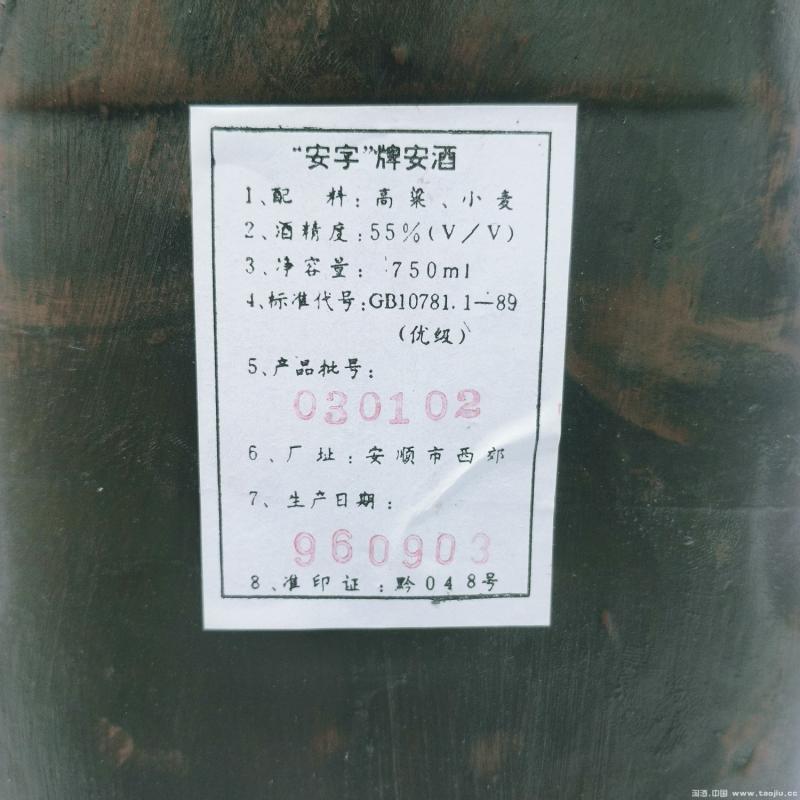 “安字”牌安酒
1、配　料：高粱、小麦
2、酒精度：55%(V／V)
3、净容量：750ml
4、标准代号：GB10781.1—89
（优级）
5、产品批号：
030102
6、厂址：安顺市西郊
7、生产日期：
960903
8、准印证：黔048号
淘酒.中国 www.taojiu.cc